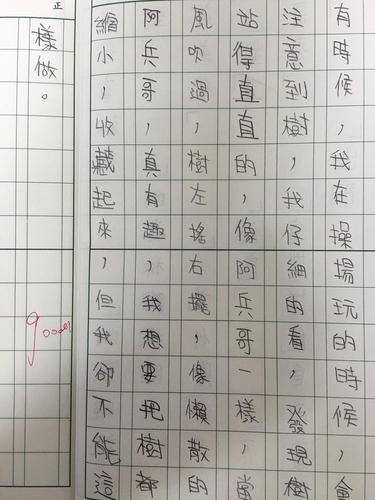 有時候，我在操場玩的時候，會
注意到樹，我仔細的看，發現樹
站得直直的，像阿兵哥一樣，當
風吹過，樹左搖右擺，像懶散的
阿兵哥，真有趣，我想要把樹都
縮小，收藏起來，但我卻不能這
樣做。
正